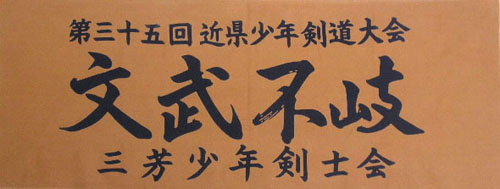 第三十五回近県少年剣道大会
文武不岐
三芳少年剣士会